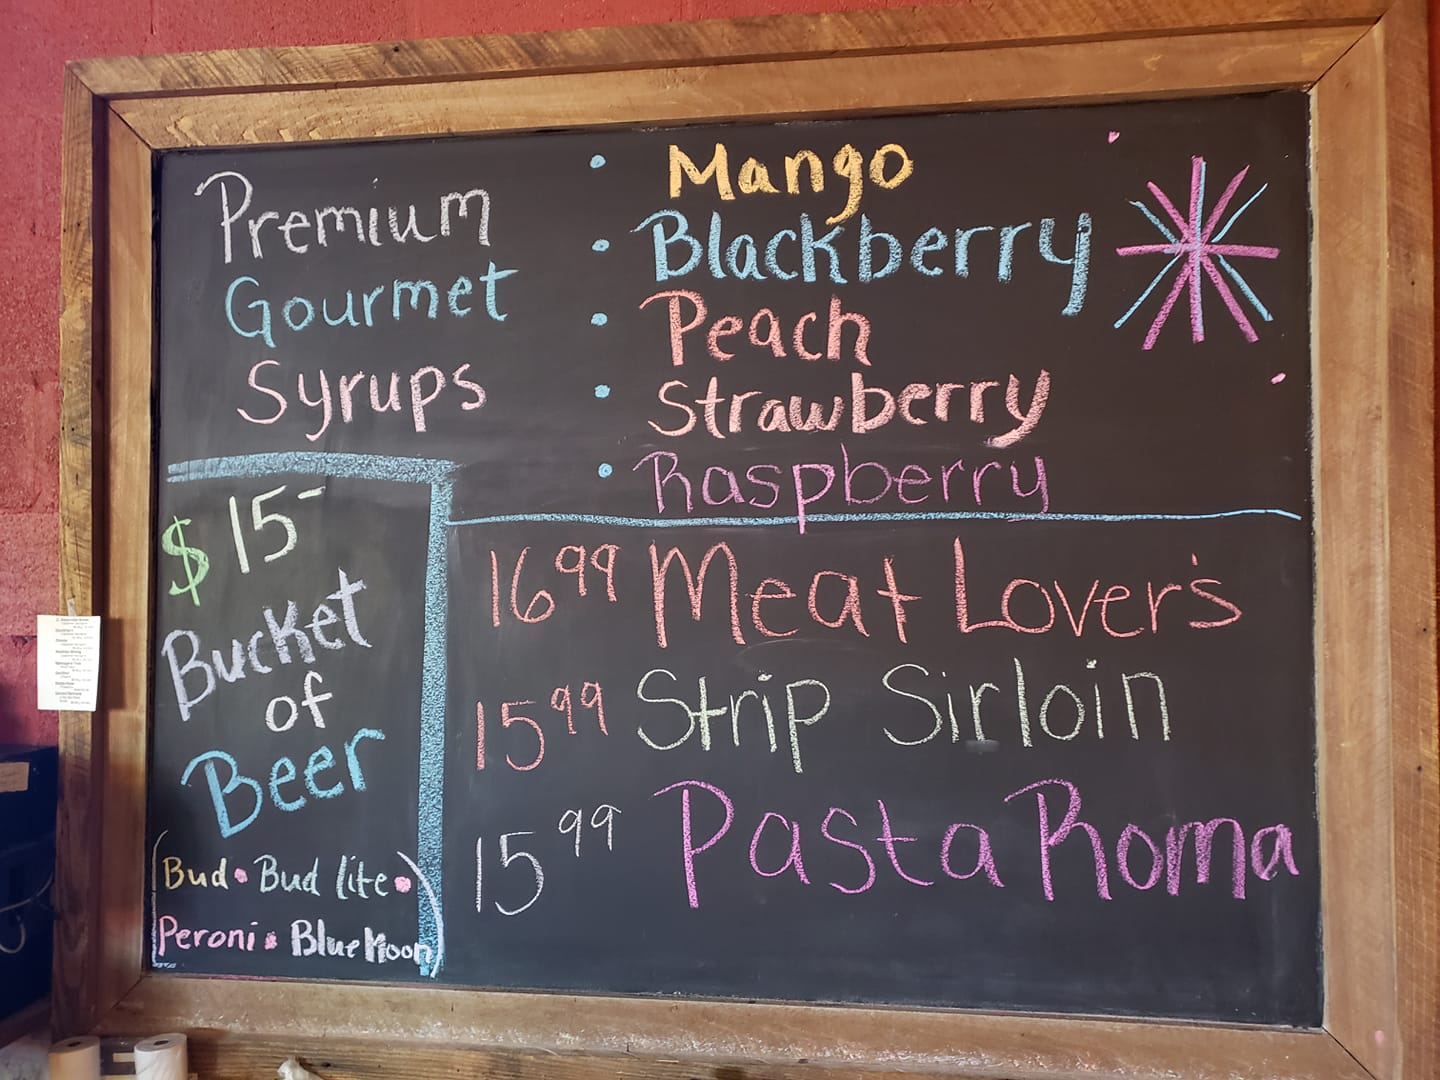 Premium
Gourmet
Syrups
• Mango
• Blackberry
• Peach
• Strawberry
• Raspberry
$15-
Bucket
of
Beer
(Bud • Bud lite •
Peroni • Blue Moon)
16.99 Meat Lover's
15.99 Strip Sirloin
15.99 Pasta Roma